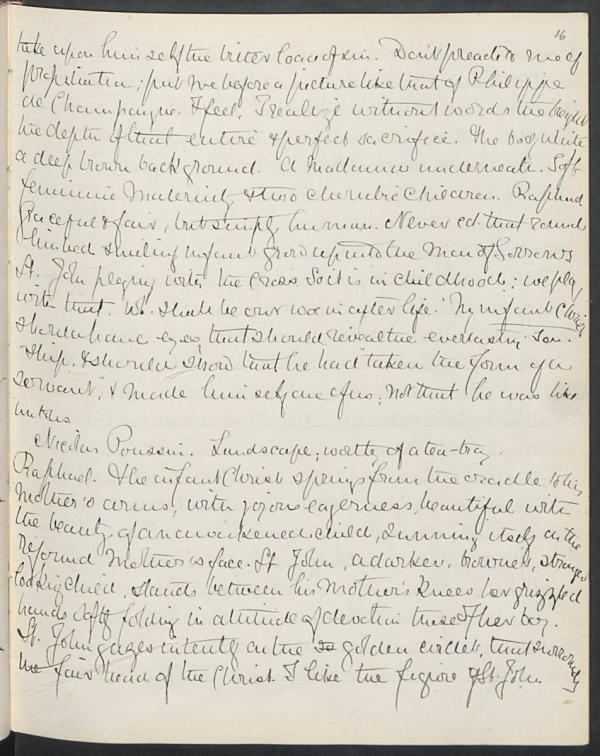 16
take upon himself the bitter load of sin. Don't preach to me of
propitiation; put me before a picture like that of Philippe
de Champagne. I feel, I realize without words the height
the depth of that entire & perfect sacrifice. The body white
a deep brown background. A Madonna underneath. Soft
feminine Maternity & two cherubic children. Raphael
Graceful & fair, but simply human. Never cd. that round
limbed smiling infant grow up into the Man of Sorrows
St. John playing with the Cross. So it is in childhood; we play
with that, wh. shall be our woe in after life. My infant Christ
should have eyes that should reveal the everlasting Son-
ship, & should show that he had taken the form of a
servant, & made himself one of us; not that he was like
unto us
Nicolas Poussin. Landscape; worthy of a tea-tray.
Raphael. The infant Christ springs from the cradle to his
Mother's arms, with joyous eagerness, beautiful with
the beauty of an awakened child, sunning itself in the
Mother's face. St John, a darker, browner, stronger
looking child, stands between his Mother's knees, her grizzled
hands softly folding in attitude of devotion those of her boy.
St. John gazes intently on the golden circlet, that surrounds
the fair head of the Christ. I like the figure of St. John